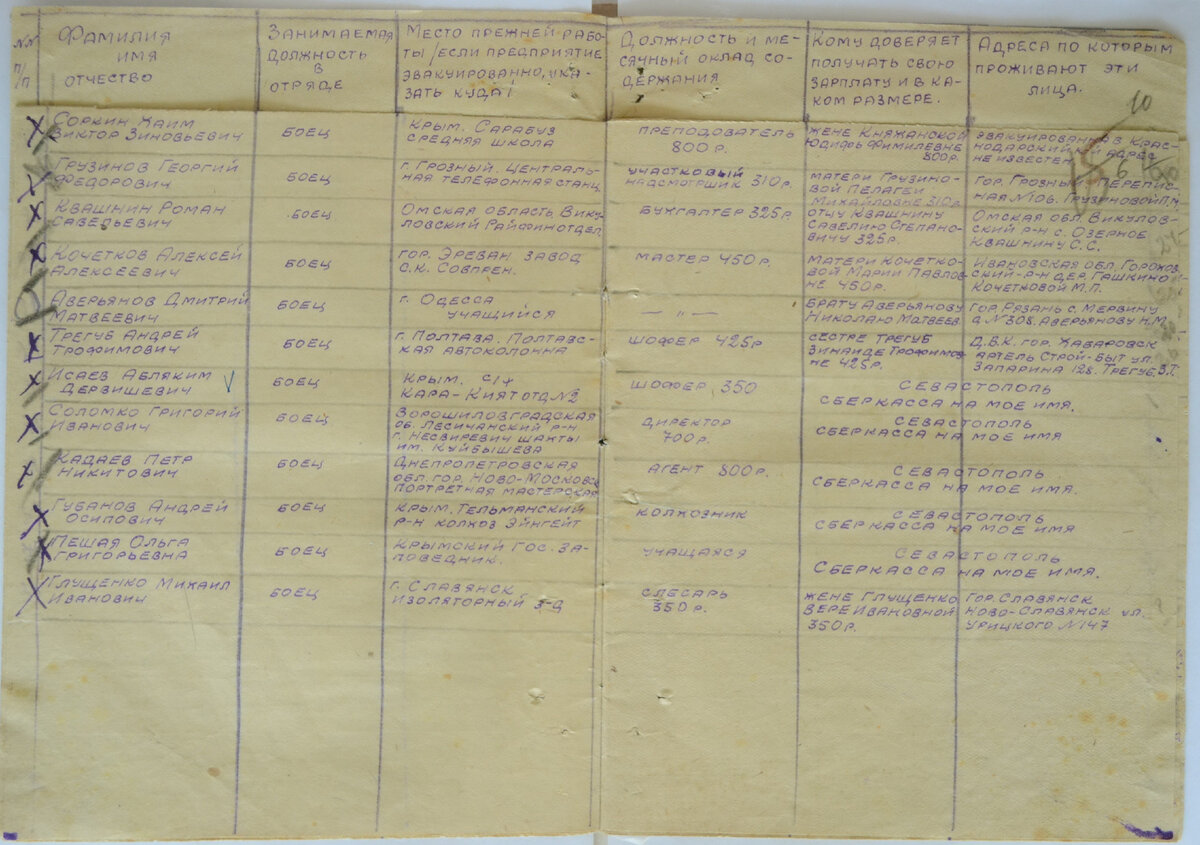 NN п/п
Фамилия
имя
отчество
Занимаемая
должность
в
отряде
Место прежней рабо-
ты /если предприятие
эвакуированно, ука-
зать куда/
Должность и ме-
сячный оклад со-
держания
Кому доверяет
получать свою
зарплату и в ка-
ком размере.
Адреса по которым
проживают эти
лица.
10
Соркин Хаим
Виктор Зиновьевич
боец
Крым. Сарабуз
средняя школа
преподователь
800 р.
жене Княжанской
Юдифь Фимилевне
800 р.
эвакуированы в Крас-
нодарский край адрес
не известен
Грузинов Георгий
Федорович
боец
г. Грозный. Централь-
ная телефонная станц.
участковый
надсмотршик 310 р.
матери Грузино-
вой Пелагеи
Михайловне 310 р.
гор. Грозный Перепис-
ная №106. Грузиновой П.М.
Квашнин Роман
Савельевич
боец
Омская область. Вику-
ловский Райфинотдел
бухгалтер 325 р.
отцу Квашнину
Савелию Степано-
вичу 325 р.
Омская обл. Викулов-
ский р-н с. Озерное
Квашнину С.С.
Кочетков Алексей
Алексеевич
боец
гор. Эреван завод
С.К. Совпрен.
мастер 450 р.
матери Кочетко-
вой Марии Павлов-
не 450 р.
Ивановская обл. Горохов
ский-р-н дер. Гашкино
Кочетковой М.П.
Аверьянов Дмитрий
Матвеевич
боец
г. Одесса
учащийся
— " —
брату Аверьянову
Николаю Матвеев
гор. Рязань с. Мервину
д. №308. Аверьянову Н.М.
Трегуб Андрей
Трофимович
боец
г. Полтава. Полтавс-
кая автоколонна
шофер 425 р
сестре Трегуб
Зинаиде Трофимов
не 425 р.
Д.В.К. гор. Хаваровск
артель Строй-быт ул.
Запарина 128. Трегуб. З.Т.
Исаев Абляким
Дервишевич
боец
Крым. с/х
Кара-Кият отд №2
шофер 350
Севастополь
сберкасса на мое имя.
Соломко Григорий
Иванович
боец
Ворошиловградская
об. Лесичанский р-н
г. Несвиревич шахты
им. Куйбышева
директор
700 р.
Севастополь
сберкасса на мое имя
Кадаев Петр
Никитович
боец
Днепропетровская
обл. гор. Ново-Московск
портретная мастерская
агент 800 р.
Севастополь
сберкасса на мое имя.
Губанов Андрей
Осипович
боец
Крым. Тельманский
р-н колхоз Эйнгейт
колхозник
Севастополь
сберкасса на мое имя
Пешая Ольга
Григорьевна
боец
Крымский Гос. за-
поведник.
учащаяся
Севастополь
Сберкасса на мое имя.
Глущенко Михаил
Иванович
боец
г. Славянск
Изоляторный з-д
слесарь
350 р.
жене Глущенко
Вере Ивановной
350 р.
гор. Славянск
Ново-Славянск ул.
Урицкого №147